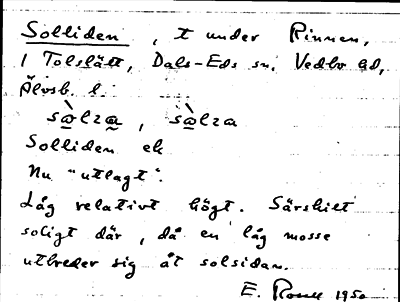 Solliden, t under Rinnen,
1 Tolslätt, Dals-Eds sn. Vedbo hd,
Älvsb. l.
sòlza, sòlza
Solliden ek
Nu "utlagt".
Låg relativt högt. Särskilt
soligt där, då en låg mosse
utbreder sig åt solsidan.
E. 1950